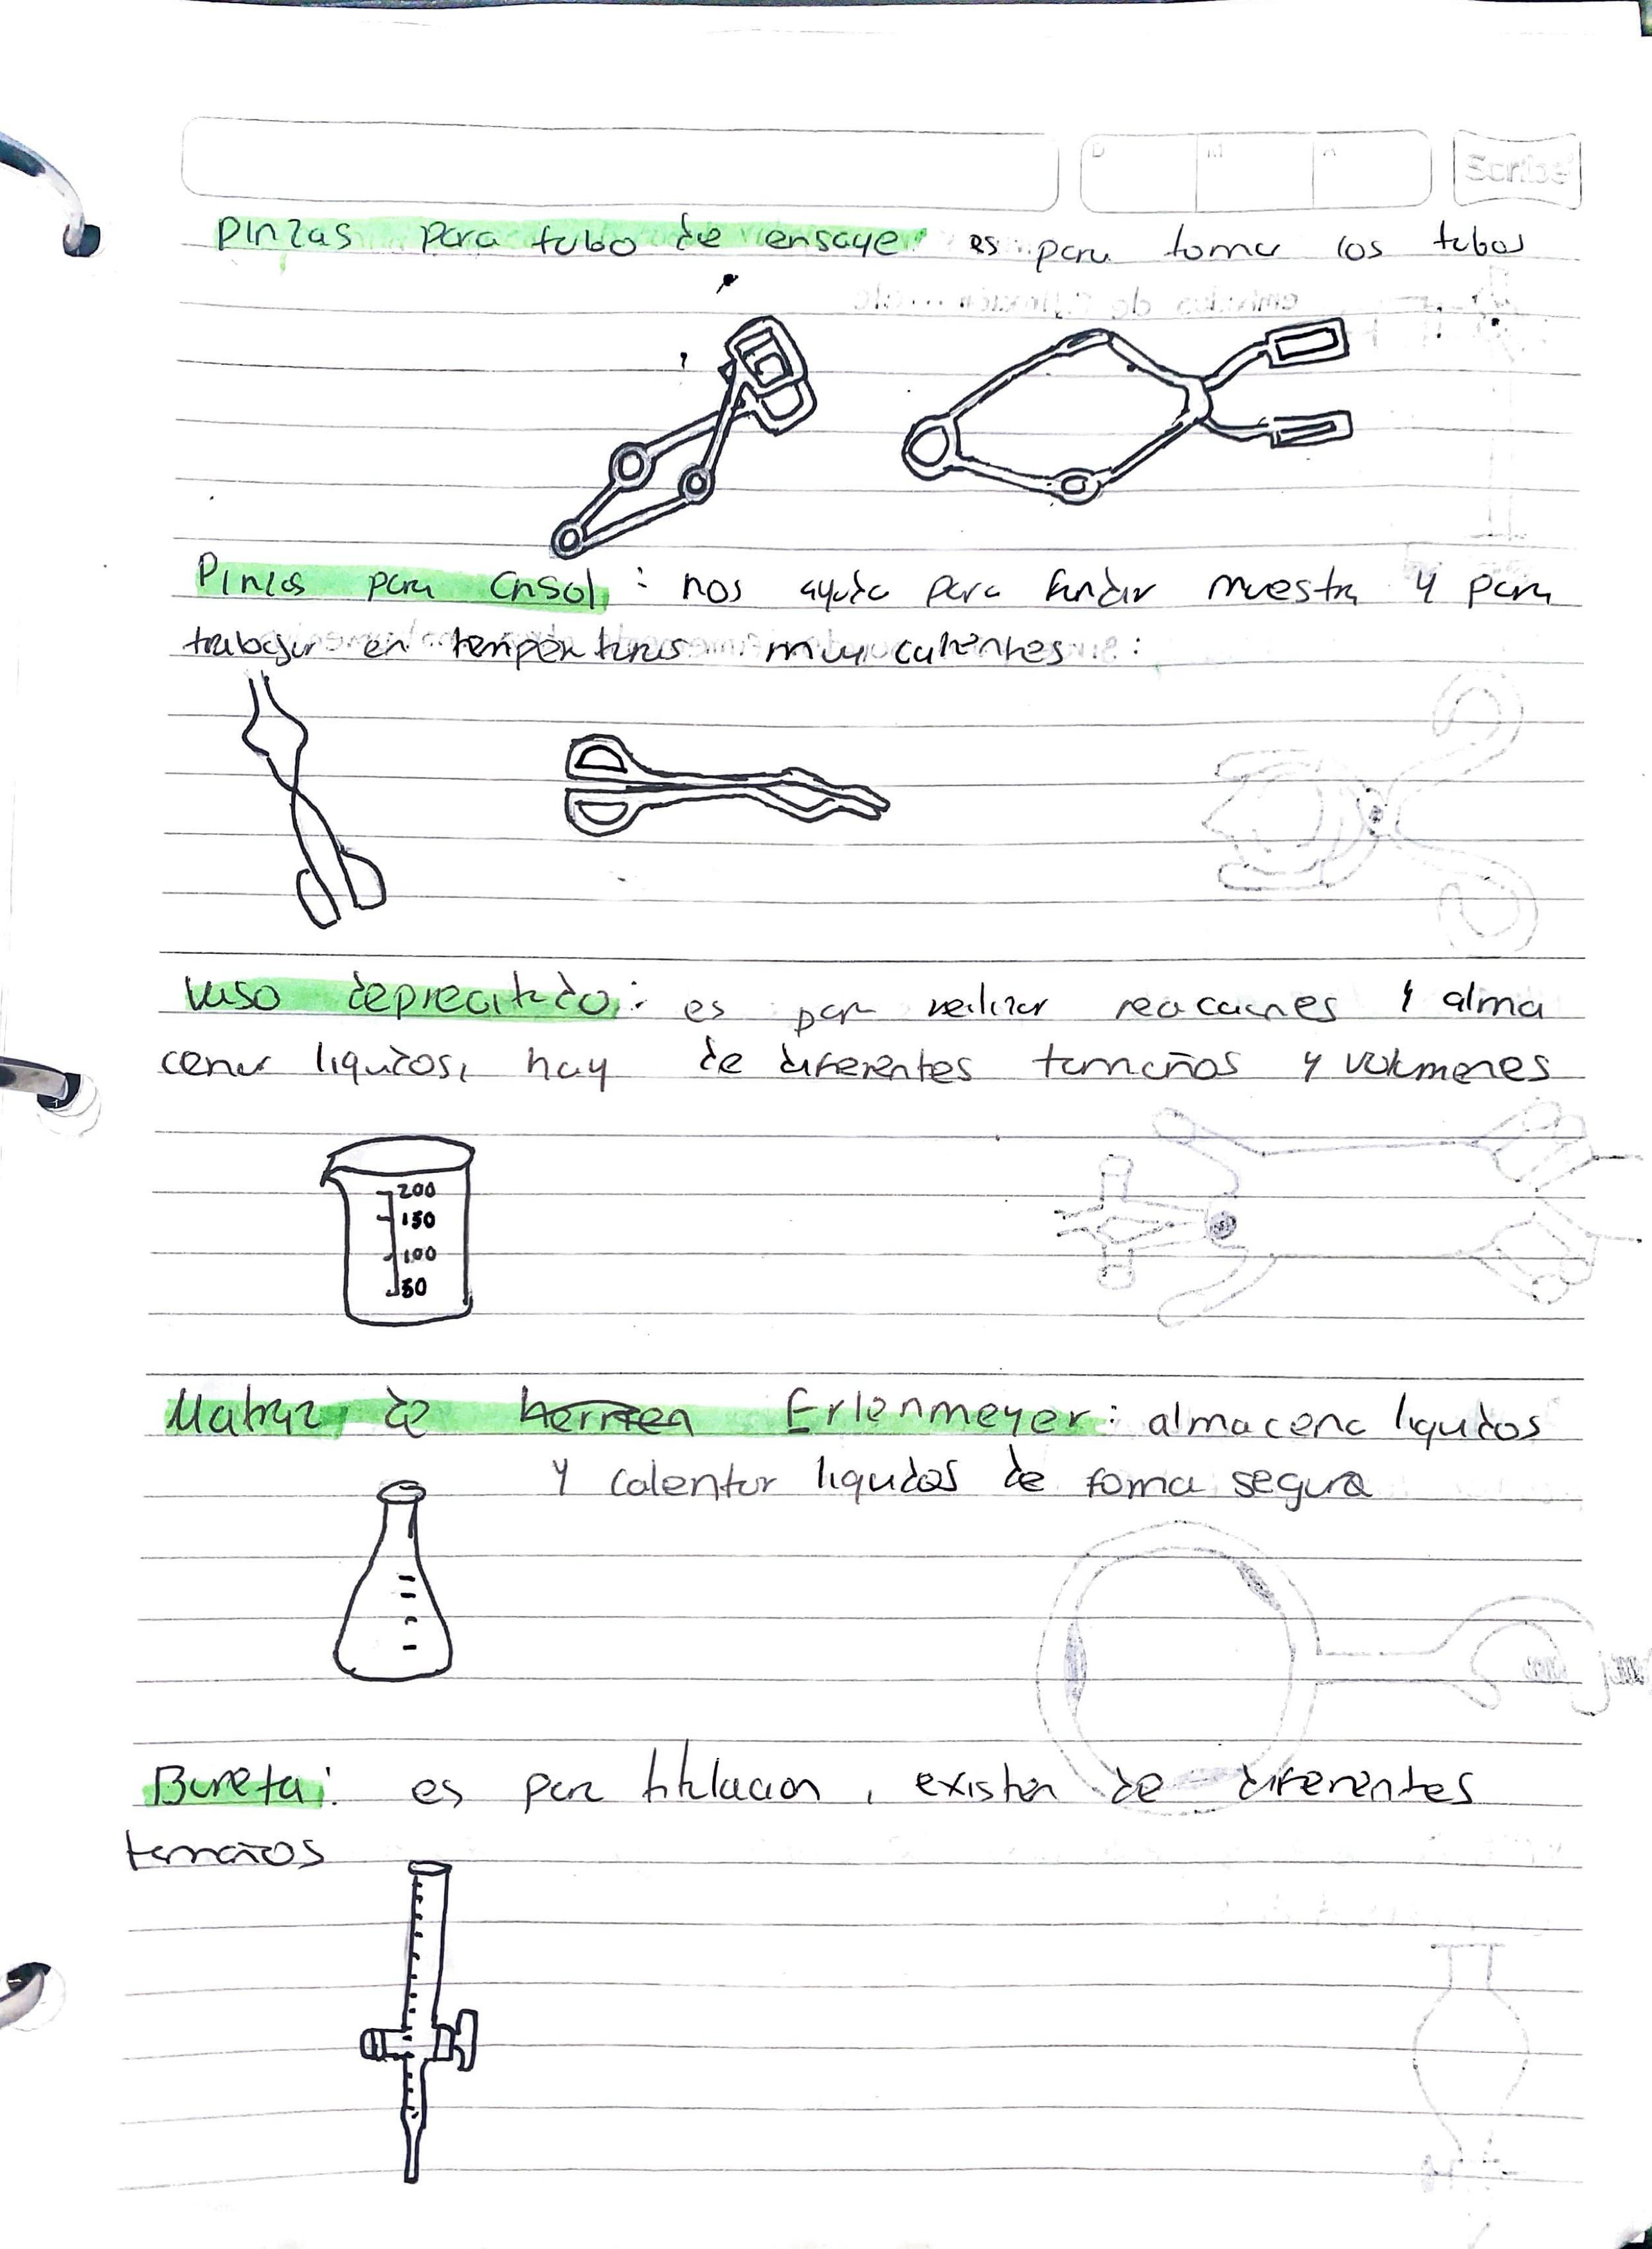 Pinzas para tubo de ensaye: es para tomar los tubos
Pinzas para Crisol: nos ayuda para fundir muestra y para
trabajar en temperaturas muy calientes:
Vaso deprecitado: es para realizar reacciones y alma
cenar liquidos, hay de diferentes tamaños y volumenes
200
150
100
50
Matraz de Erlenmeyer: almacena liquidos
y calentar liquidos de forma segura
Bureta: es para titulacion, existen de diferentes
tamaños